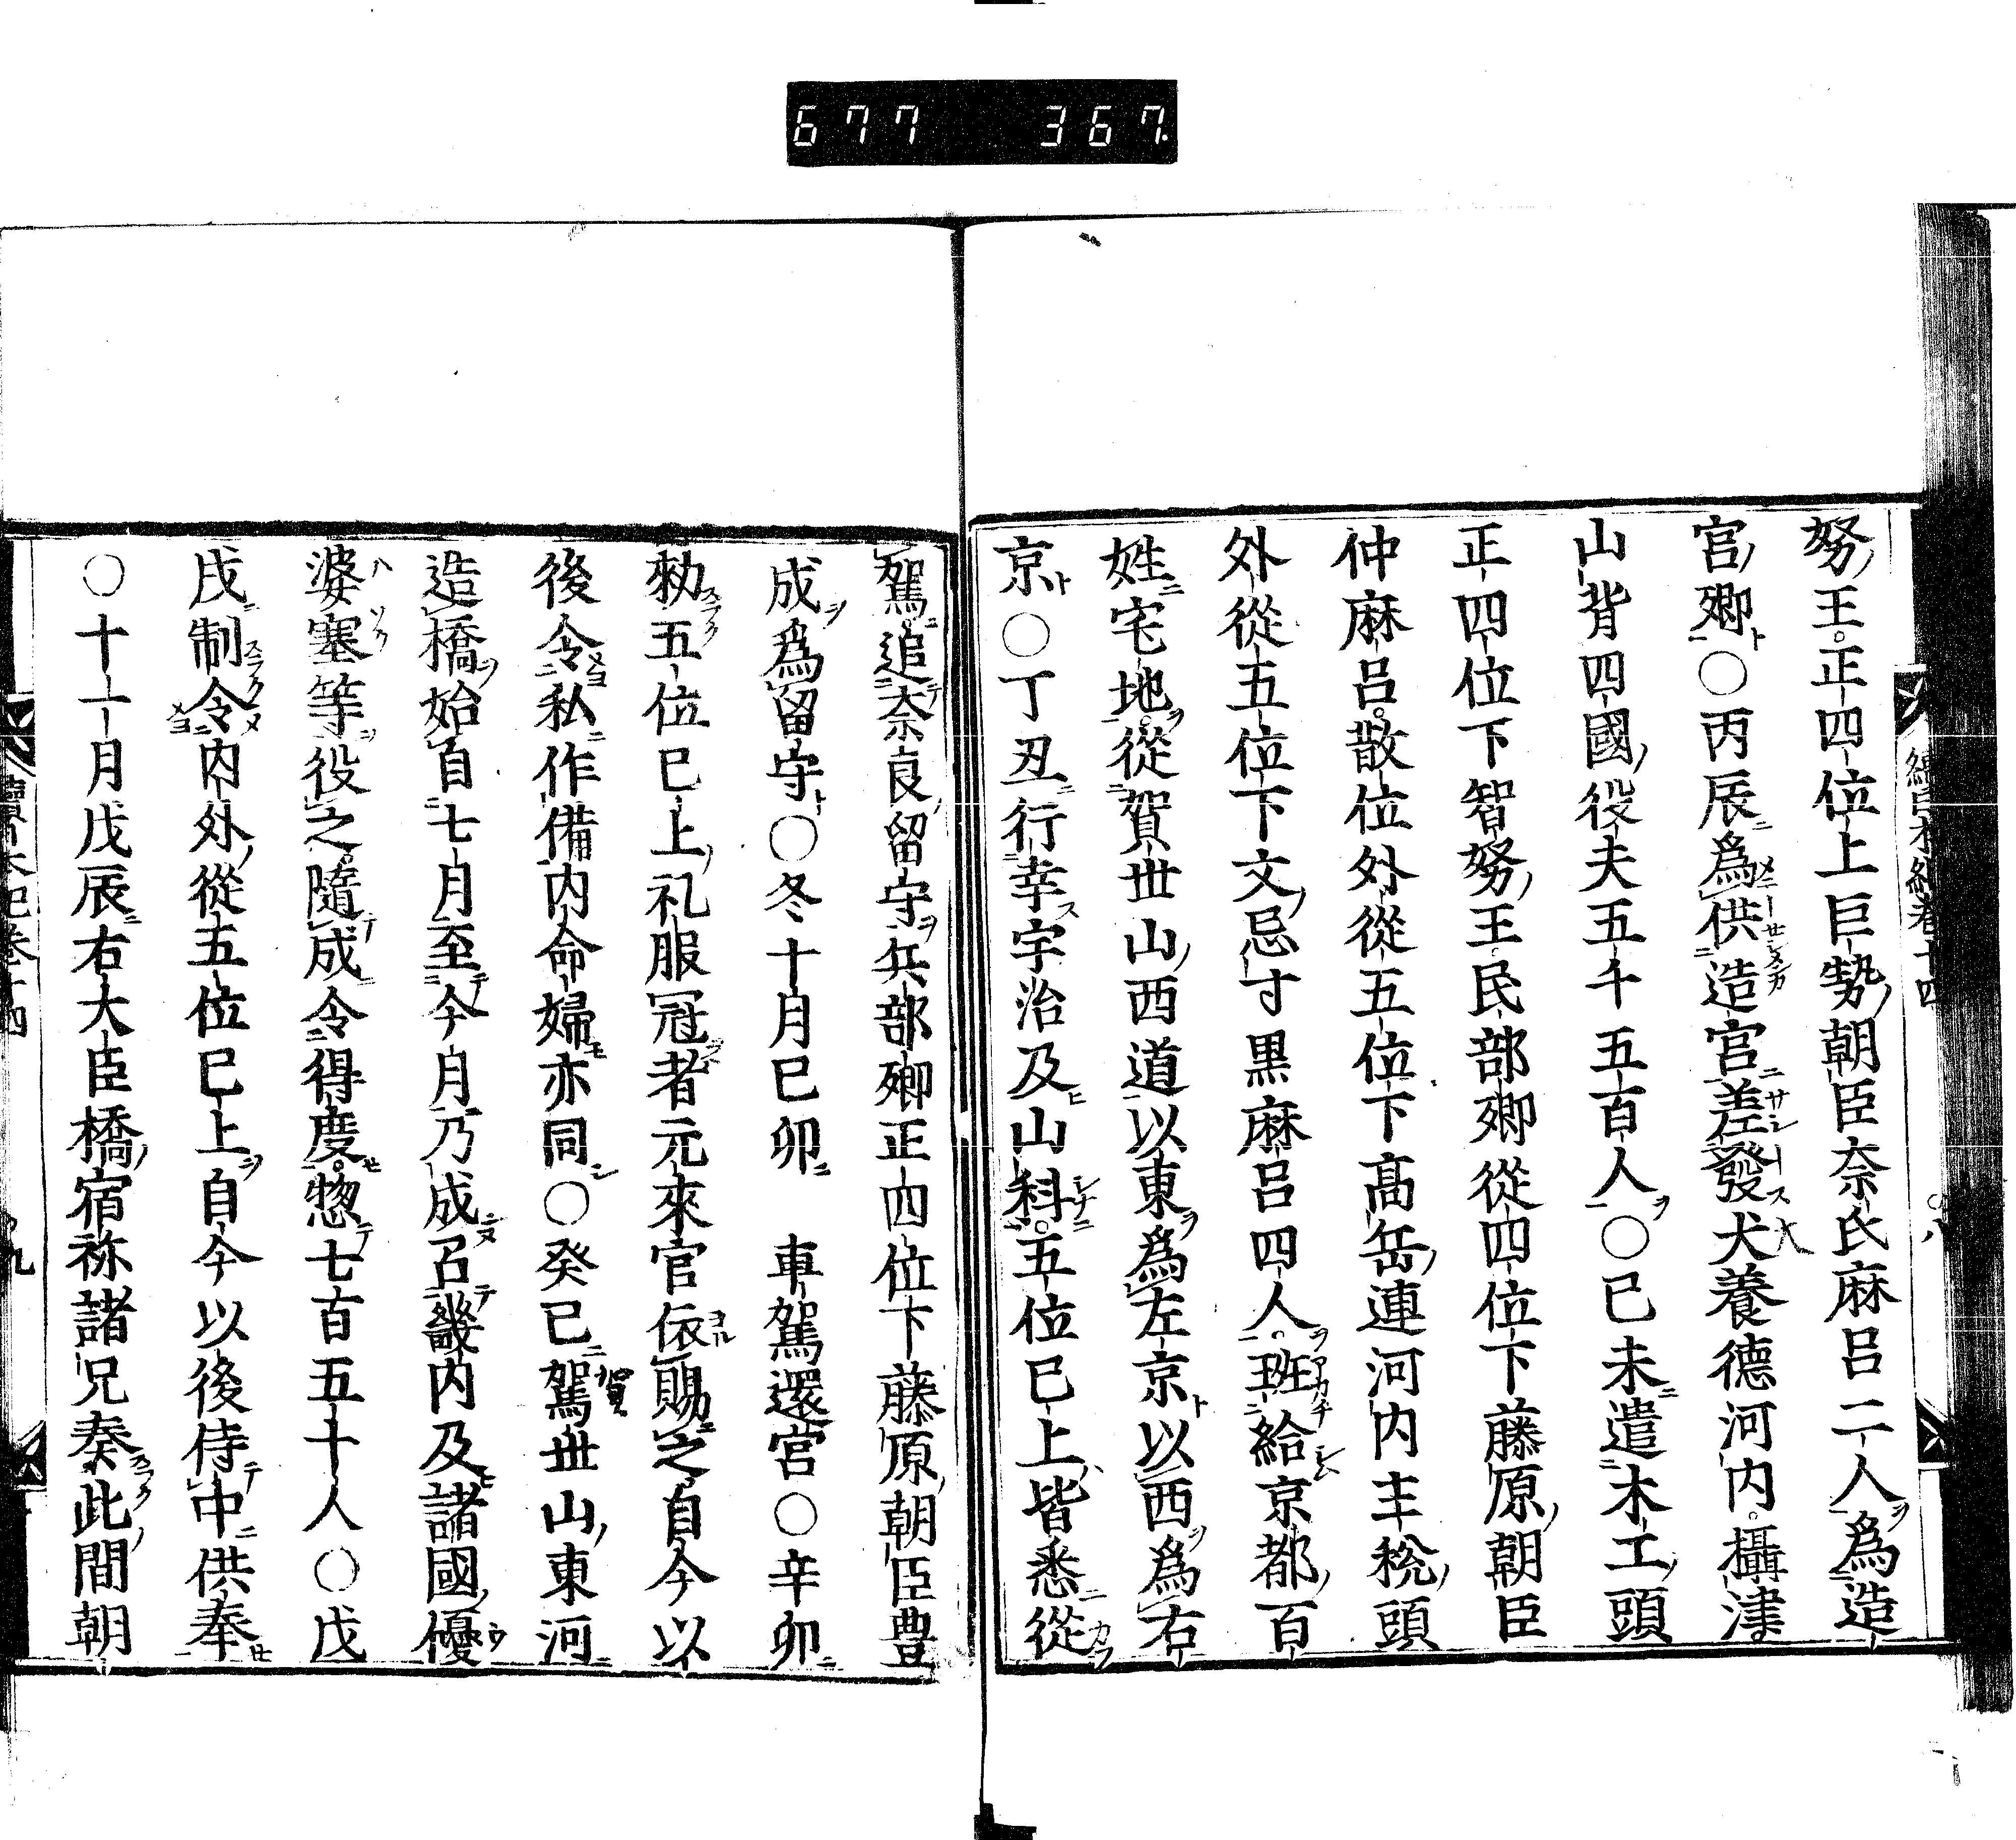 677 367.
續日本紀卷十四 八
努王正四位上巨勢朝臣奈氐麻呂二人爲造
宮卿〇丙辰爲供造宮差發大養德河內攝津
山背四國役夫五千五百人〇己未遣木工頭
正四位下智努王民部卿從四位下藤原朝臣
仲麻呂散位外從五位下高岳連河內主税頭
外從五位下文忌寸黒麻呂四人班給京都百
姓宅地從賀世山西道以東爲左京以西爲右
京〇丁丑行幸宇治及山科五位已上皆悉從
駕追奈良留守兵部卿正四位下藤原朝臣豊
成爲留守〇冬十月己卯 車駕還宮〇辛卯
勅五位已上礼服冠者元來官依賜之自今以
後令私作備內命婦亦同〇癸巳駕世山東河
賀
造橋始自七月至今月乃成召畿內及諸國優
婆塞等役之隨成令得度惣七百五十人〇戊
戌制令內外從五位已上自今以後侍中供奉
〇十一月戊辰右大臣橋宿祢諸兄奏此間朝
續日本紀卷十四 九